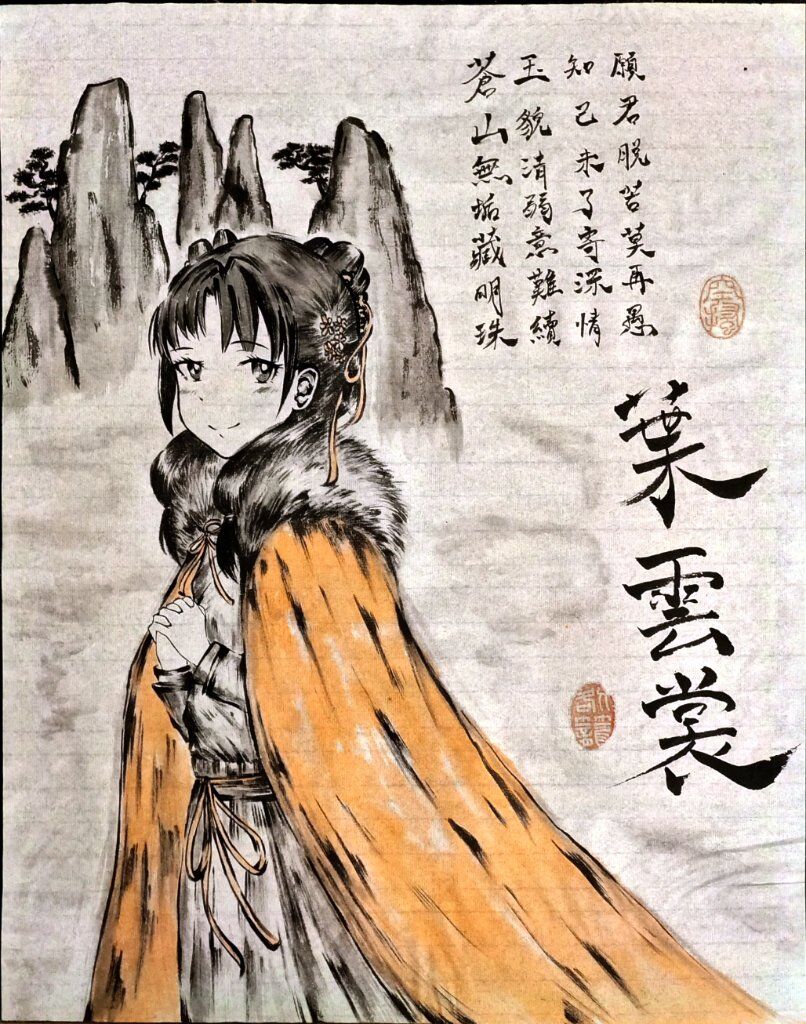 蒼山無垢藏明珠
玉貌清弱意難續
知己未了寄深情
願君脱苦莫再愚
葉雲裳